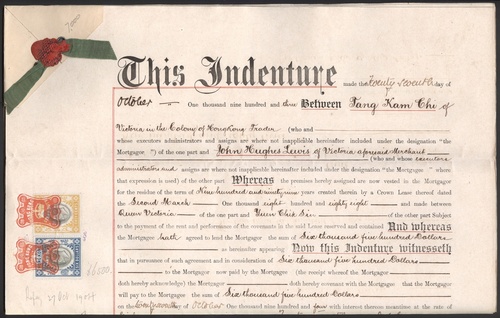 7000
This Indenture made the Twenty seventh day of
October One thousand nine hundred and three Between Tang Kam Chi of
Victoria in the Colony of Hongkong Trader (who and
whose executors administrators and assigns are where not inapplicable hereinafter included under the designation "the
Mortgagor") of the one part and John Hughes Lewis of Victoria aforesaid Merchant
(who and whose executors
administrators and assigns are where not inapplicable hereinafter included under the designation "the Mortgagee" where
that expression is used) of the other part Whereas the premises hereby assigned are now vested in the Mortgagor
for the residue of the term of Nine hundred and ninety nine years created therein by a Crown Lease thereof dated
the Second March One thousand eight hundred and eighty eight and made between
Queen Victoria of the one part and of the other part Subject
to the payment of the rent and performance of the covenants in the said Lease reserved and contained And whereas
the Mortgagee hath agreed to lend the Mortgagor the sum of Six thousand five hundred Dollars
hereinafter appearing Now this Indenture witnesseth
that in pursuance of such agreement and in consideration of Six thousand five hundred Dollars
to the Mortgagor now paid by the Mortgagee (the receipt whereof the Mortgagor
doth hereby acknowledge) the Mortgagor doth hereby covenant with the Mortgagee that the Mortgagor
will pay to the Mortgagee the sum of Six thousand five hundred Dollars
on the day of October One thousand nine hundred and four with interest thereon meantime at the rate
27 Oct